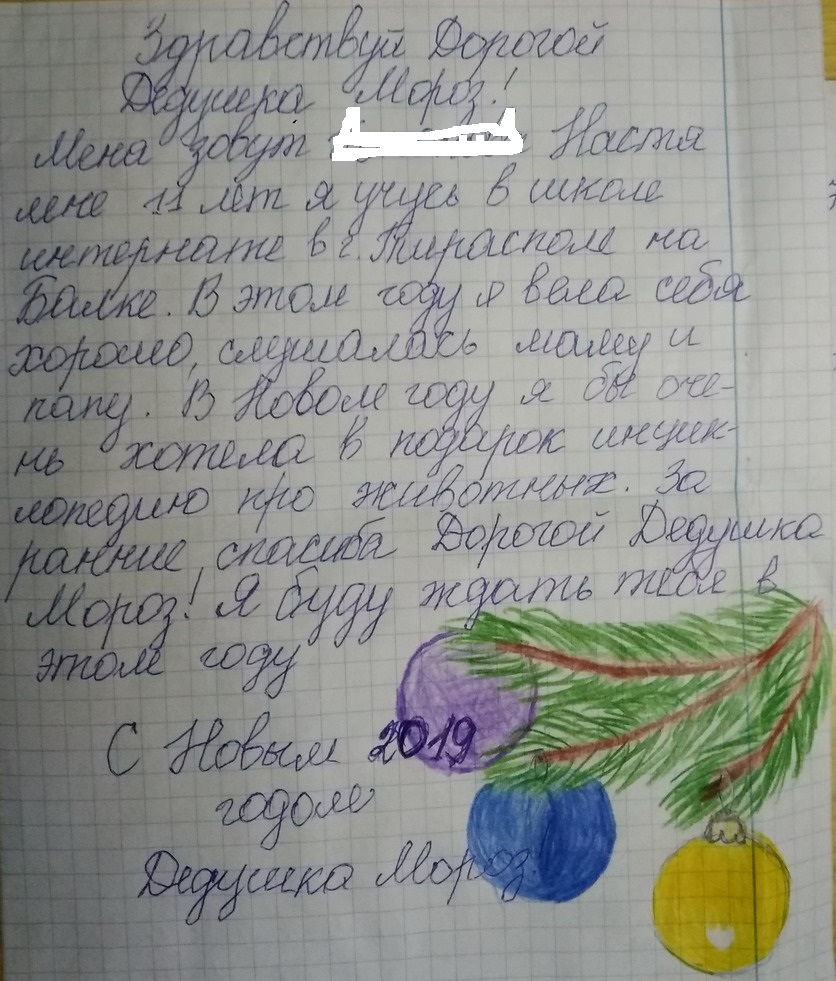 Здравствуй Дорогой
Дедушка Мороз!
Мена зовут Настя
мне 11 лет я учусь в школе
интернате в г. Тирасполе на
Балке. В этом году я вела себя
хорошо, слушалась маму и
папу. В Новом году я бы оче-
нь хотела в подарок инцик-
лопедию про животных. За
ранние, спасиба Дорогой Дедушка
Мороз! Я буду ждать тебя в
этом году
С Новым 2019
годом
Дедушка Мороз!